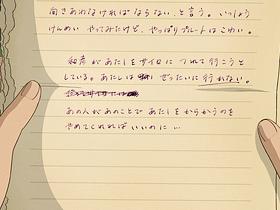 向きあわなければならないと言う。いっしょう
けんめい やってみたけど、やっぱりプレートはこわい。
和彦があたしをサイロに つれて行こうと
している。あたしは ぜったいに行れない。
あの人があのことで あたしをからかうのを
やめてくれればいいのに…